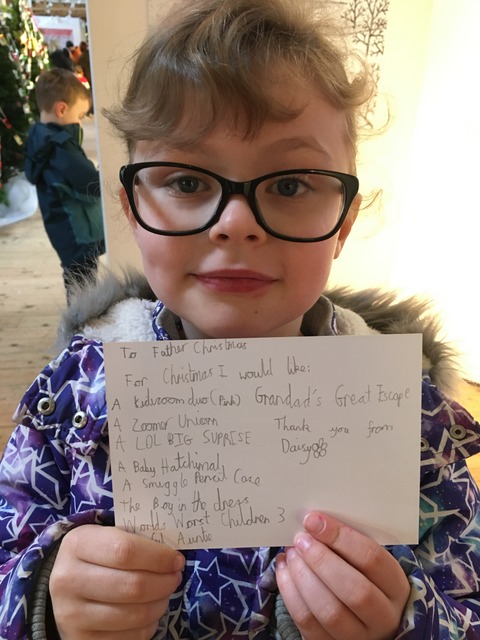 To Father Christmas
For Christmas I would like:
A Kidizoom duo (Pink) Grandad's Great Escape
A Zoomer Unicorn Thank you from
A LOL BIG SUPRISE Daisy
A Baby Hatchimal
A Smuggle Pencil Case
The Boy in the dress
Worlds Worst Children 3
Auntie